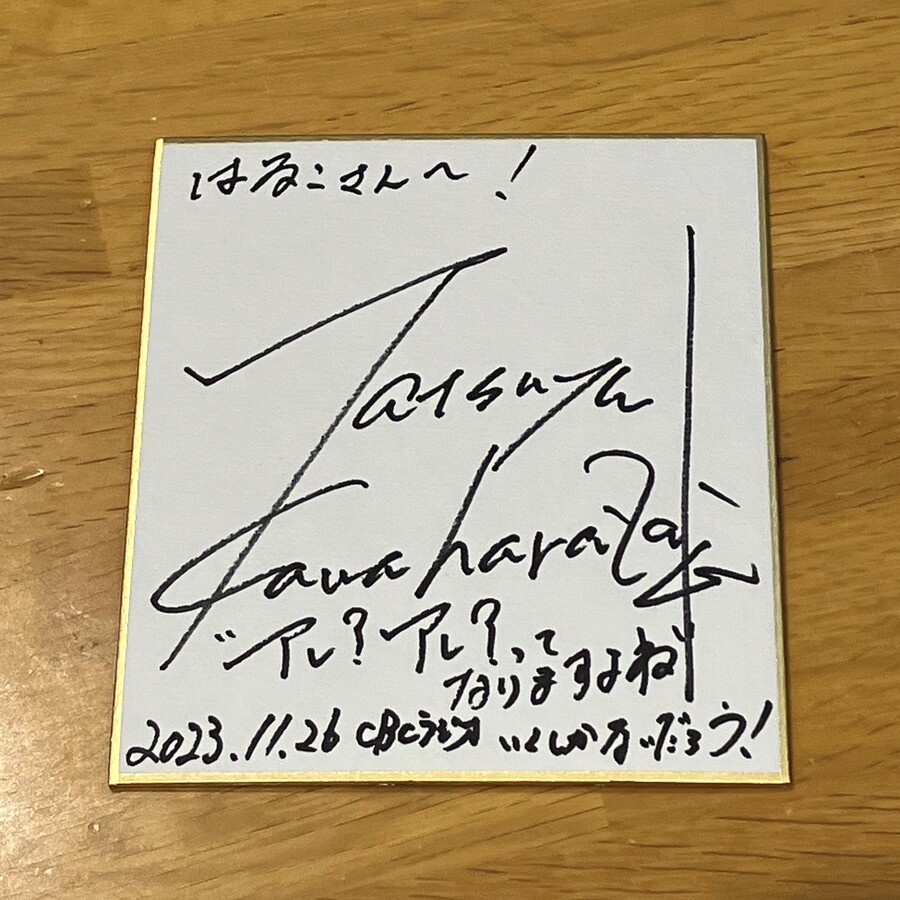 はるこさんへ!
Tatsuya
Kawaharazaki
"アレ?アレ?って
なりますよね"
2023.11.26 CBCラジオ いくしかないだろう!